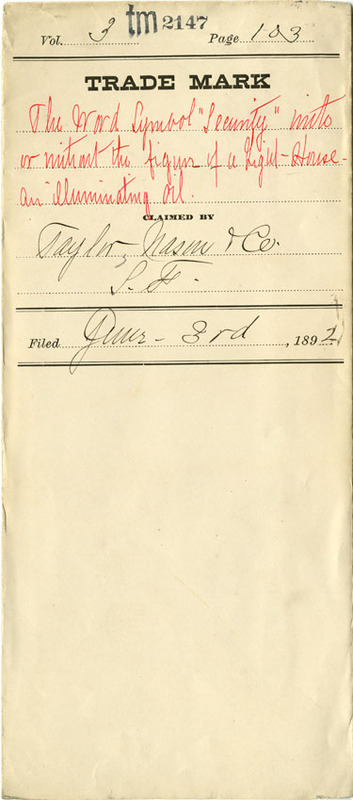 Vol. 3 tm 2147 Page 103
TRADE MARK
The Word Symbol "Security" with
or without the figure of a Light-House-
an illuminating oil.
CLAIMED BY
Taylor, Nason & Co.
S. F.
Filed June - 3rd, 1892